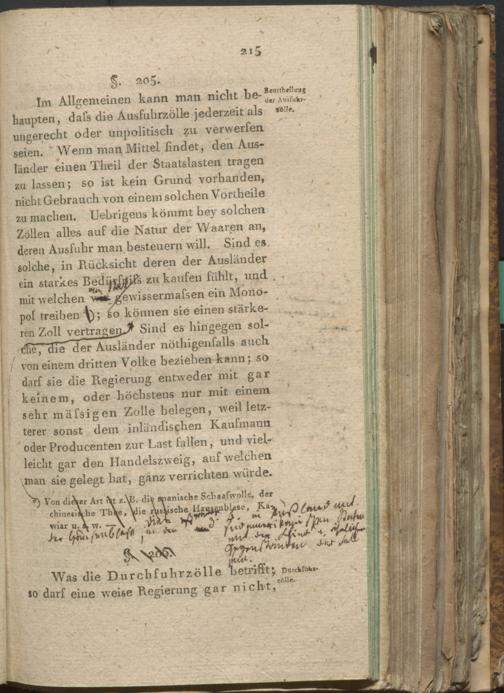 215
§. 205.
Im Allgemeinen kann man nicht be-
haupten, daſs die Ausfuhrzölle jederzeit als
ungerecht oder unpolitisch zu verwerfen
seien. Wenn man Mittel findet, den Aus-
länder einen Theil der Staatslasten tragen
zu lassen; so ist kein Grund vorhanden,
nicht Gebrauch von einem solchen Vortheile
zu machen. Uebrigens kömmt bey solchen
Zöllen alles auf die Natur der Waaren an,
deren Ausfuhr man besteuern will. Sind es
solche, in Rücksicht deren der Ausländer
ein starkes Bedürfniſs zu kaufen fühlt, und
mit welchen gewissermaſsen ein Mono-
pol treiben ); so können sie einen stärke-
ren Zoll vertragen. Sind es hingegen sol-
che, die der Ausländer nöthigenfalls auch
von einem dritten Volke beziehen kann; so
darf sie die Regierung entweder mit gar
keinem, oder höchstens nur mit einem
sehr mäſsigen Zolle belegen, weil letz-
terer sonst dem inländischen Kaufmann
oder Producenten zur Last fallen, und viel-
leicht gar den Handelszweig, auf welchen
man sie gelegt hat, ganz verrichten würde.
Beurtheilung
der Ausfuhr-
zölle.
*) Von dieser Art ist z. B. die spanische Schaafwolle, der
chinesische Thee, die russische Hausenblase, Ka-
wiar u. s. w.
Was die Durchfuhrzölle betrifft;
so darf eine weise Regierung gar nicht,
Durchfuhr-
zölle.